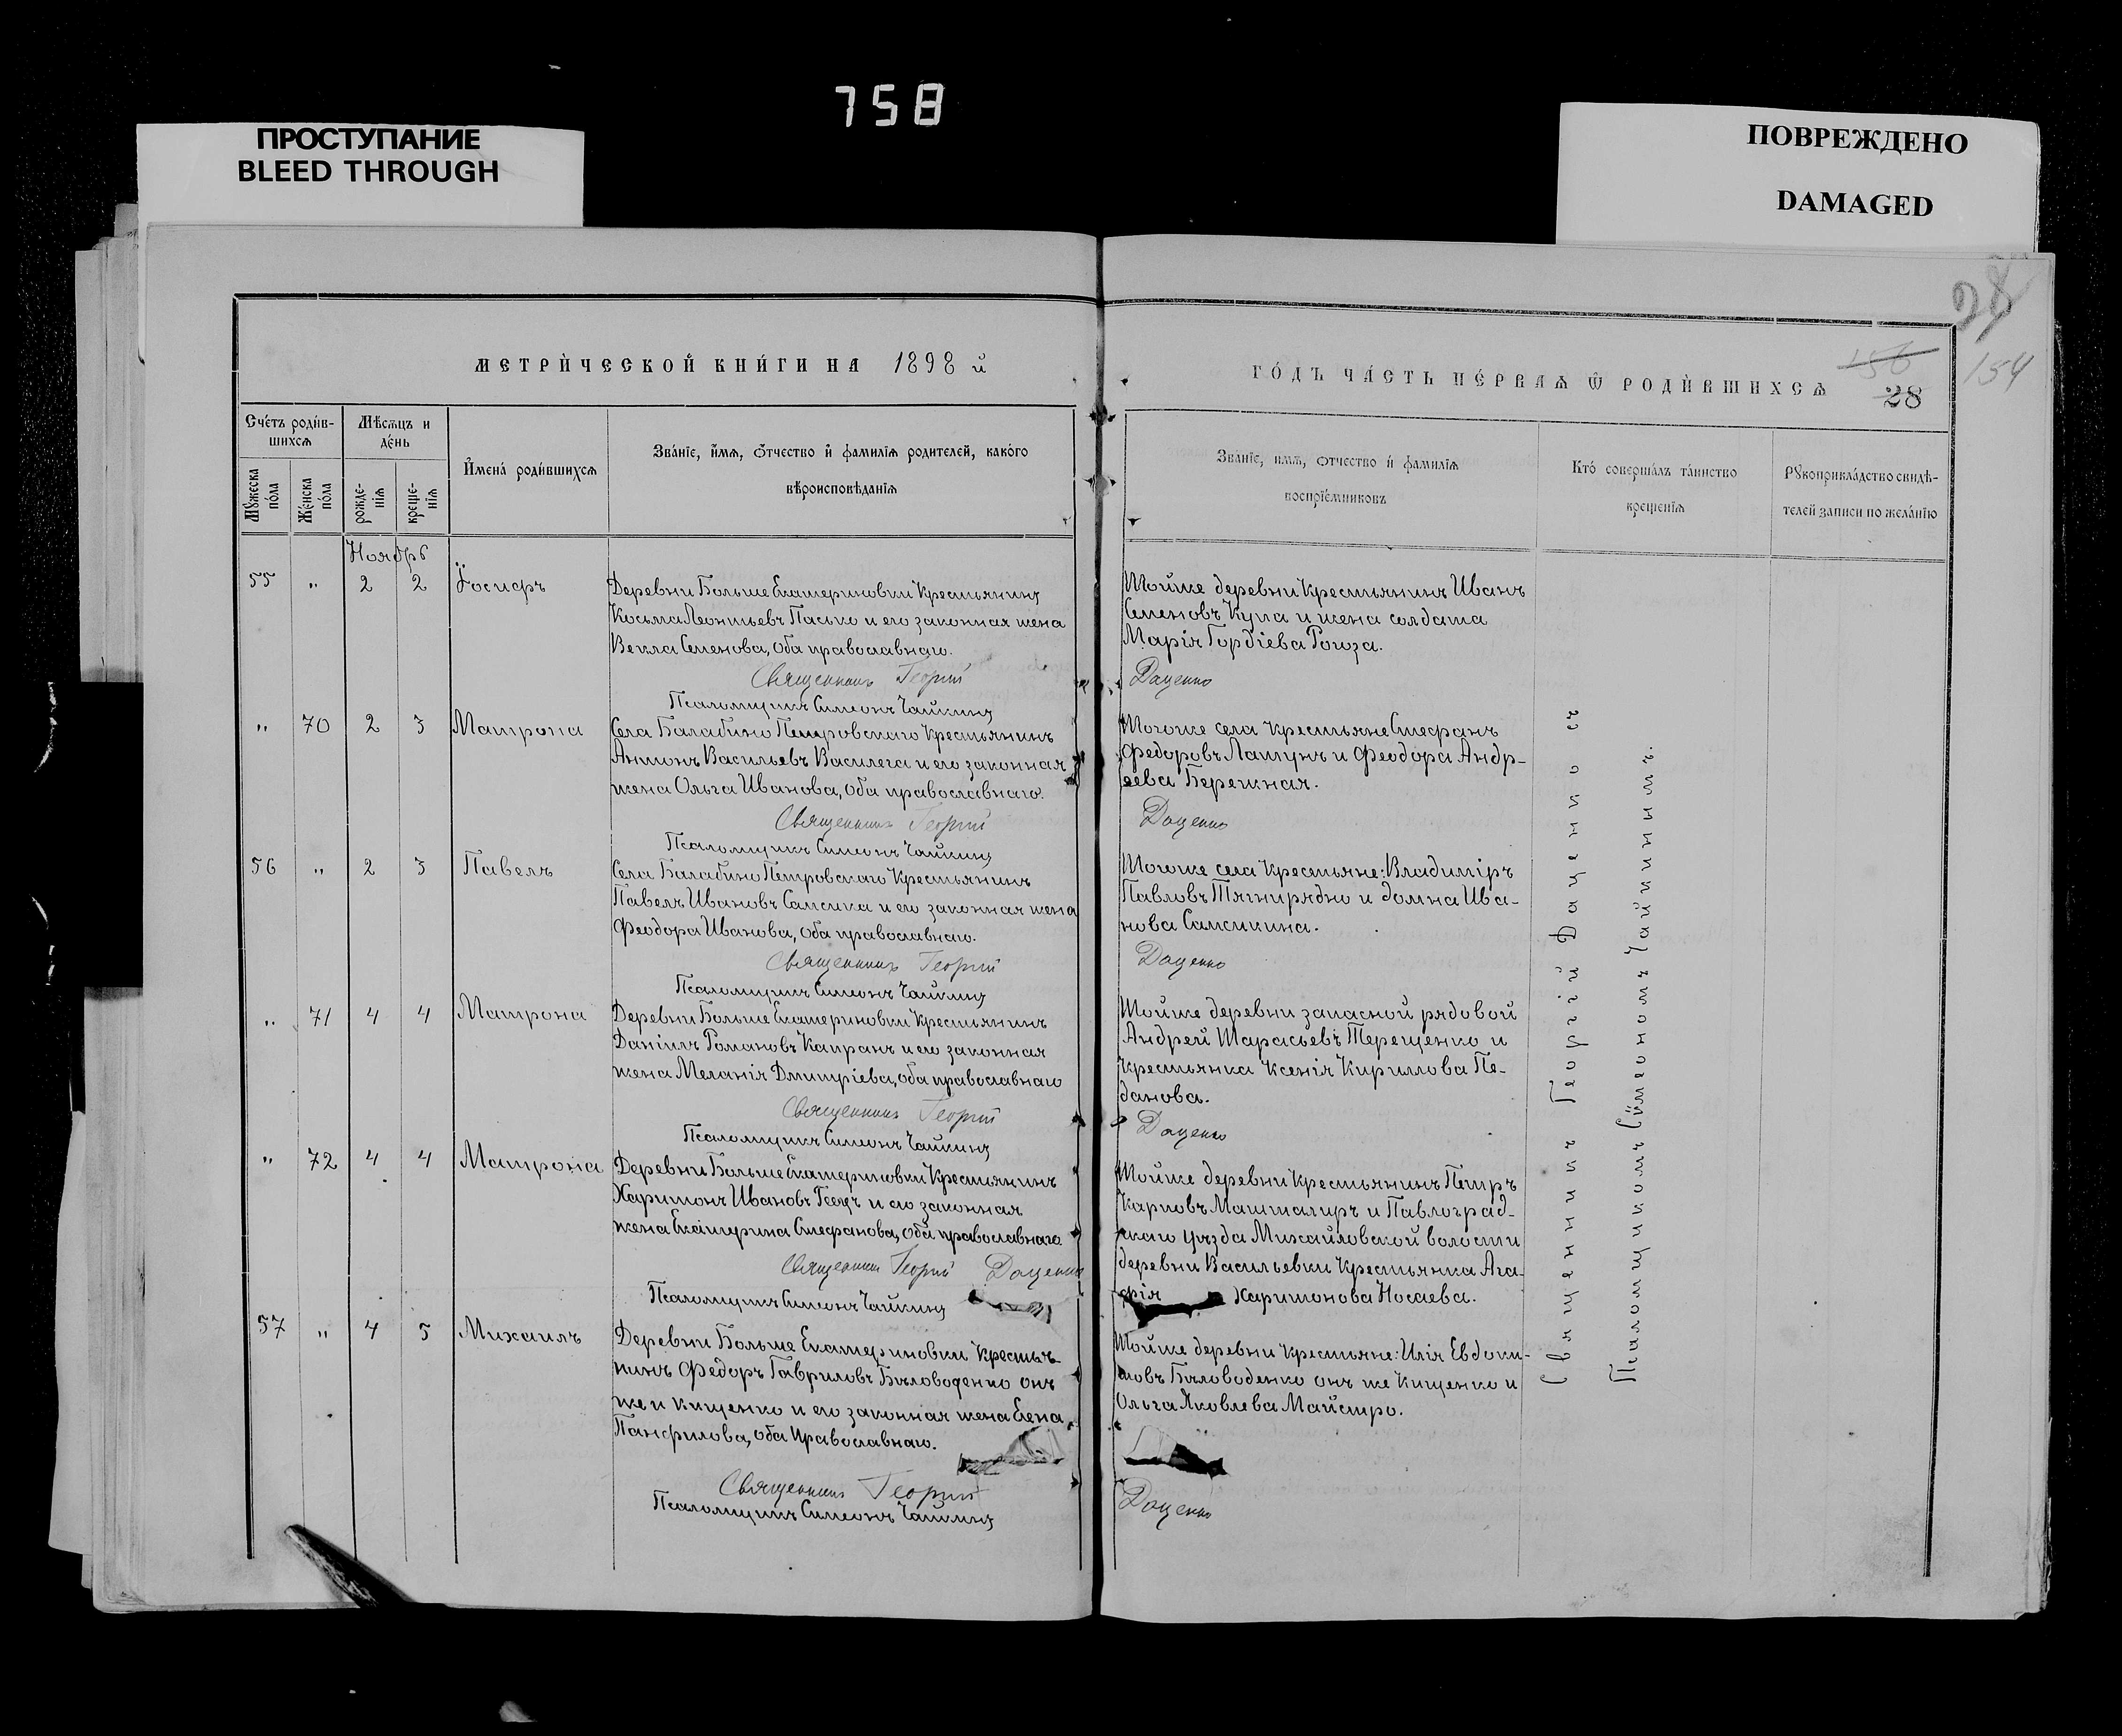 758
ПРОСТУПАНИЕ
BLEED THROUGH
ПОВРЕЖДЕНО
DAMAGED
28
154
МЕТРИ́ЧЕСКОЙ КНИ́ГИ НА 1898 й
ГО́ДЪ ЧА́СТЬ ПЕ́РВАѦ Ѿ РОДИ́ВШИХСѦ
156
28
Сче́тъ роди́в-
шихсѧ
Мѣ́сѧцъ и
де́нь
И҆мена̀ роди́вшихсѧ
Зва́нїе, и҆́мѧ, ѻ҆́тчество и҆ фами́лїѧ роди́телей, како́го
вѣроисповѣ́данїѧ
Мꙋ́жеска
по́ла
Же́нска
по́ла
рожде́-
нїѧ
креще́-
нїѧ
Зва́нїе, и҆́мѧ, ѻ҆́тчество и҆ фами́лїѧ
воспрїе́мниковъ
Кто̀ соверша́лъ та́инство
креще́нїѧ
Рꙋкоприкла́дство свидѣ́-
телей за́писи по жела́нїю
Ноябрь
55 " 2 2 Іосифъ
Деревни Больше Екатериновки крестьянинъ
Косьма Леонтьевъ Пасько и его законная жена
Векла Семенова, оба православнаго.
Священникъ Георгій
Псаломщикъ Симеонъ Чайкинъ
Тойже деревни крестьянинъ Иванъ
Семеновъ Купа и жена солдата
Марія Гордіева Рогоза.
Даценко
" 70 2 3 Матрона
Села Балабино Петровскаго крестьянинъ
Антонъ Васильевъ Василега и его законная
жена Ольга Иванова, оба православнаго.
Священникъ Георгій
Псаломщикъ Симеонъ Чайкинъ
Тогоже села крестьяне Стефанъ
Федоровъ Латунъ и Феодора Андр-
еева Бережная.
Даценко
56 " 2 3 Павелъ
Села Балабино Петровскаго крестьянинъ
Павелъ Ивановъ Самсика и его законная жена
Феодора Иванова, оба православнаго.
Священникъ Георгій
Псаломщикъ Симеонъ Чайкинъ
Тогоже села крестьяне: Владиміръ
Павловъ Тягнирядно и Домна Ива-
нова Самсикина.
Даценко
" 71 4 4 Матрона
Деревни Больше Екатериновки крестьянинъ
Даніилъ Романовъ Капранъ и его законная
жена Меланія Дмитріева, оба православнаго
Священникъ Георгій
Псаломщикъ Симеонъ Чайкинъ
Тойже деревни запасной рядовой
Андрей Тарасьевъ Терещенко и
крестьянка Ксенія Кириллова Пе-
данова.
Даценко
" 72 4 4 Матрона
Деревни Больше Екатериновки крестьянинъ
Харитонъ Ивановъ и его законная
жена Екатерина Стефанова, оба православнаго
Священникъ Георгій Даценко
Псаломщикъ Симеонъ Чайкинъ
Тойже деревни крестьянинъ Петръ
Карповъ Машталиръ и Павлоград-
скаго уѣзда Михайловской волости
деревни Васильевки крестьянка Ага-
фія Харитонова Носаева.
57 " 4 5 Михаилъ
Деревни Больше Екатериновки крестья-
нинъ Федоръ Гавриловъ Бѣловоденко онъ
же и Кищенко и его законная жена Елена
Панфилова, оба православнаго.
Священникъ Георгій
Псаломщикъ Симеонъ Чайкинъ
Тойже деревни крестьяне: Илія Евдоки-
мовъ Бѣловоденко онъ же Кищенко и
Ольга Яковлева Майстро.
Даценко
Священникъ Георгій Даценко съ
Псаломщикомъ Симеономъ Чайкинымъ.